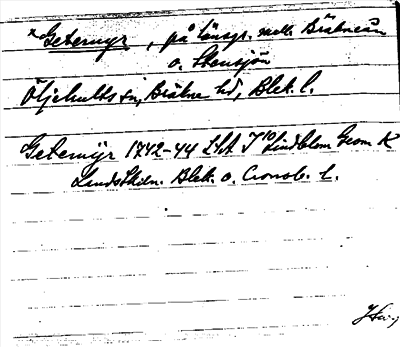 *Getemyr, på länsgr. mell. Bräkneån
o. Stensjön
Öljehults sn, Bräkne hd, Blek. l.
Getemÿr 1742-44 LSA J10 Lindblom Geom K
LandsSkiln. Blek. o. Cronob. l.